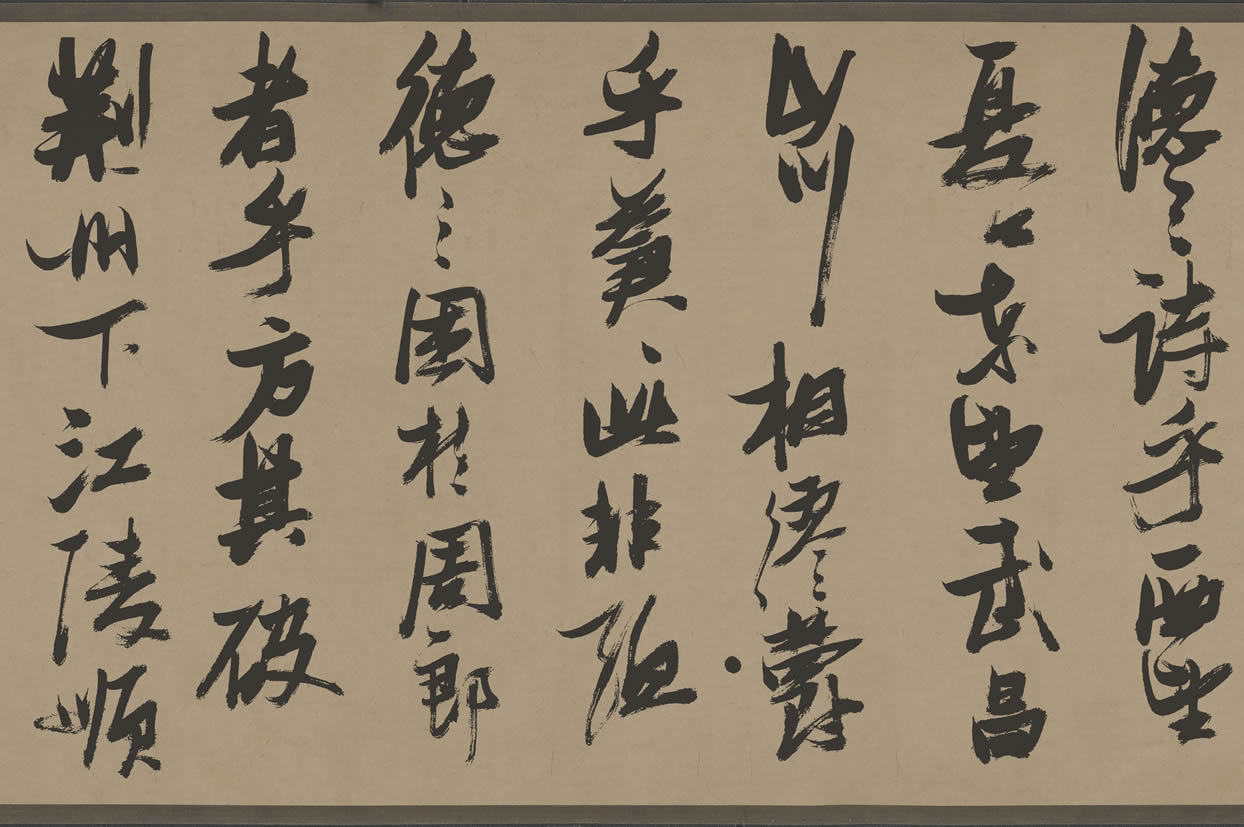 德之詩乎西望
夏口東望武昌
山川相繆鬱
乎蒼々此非孟
德之困於周郎
者乎方其破
荊州下江陵順